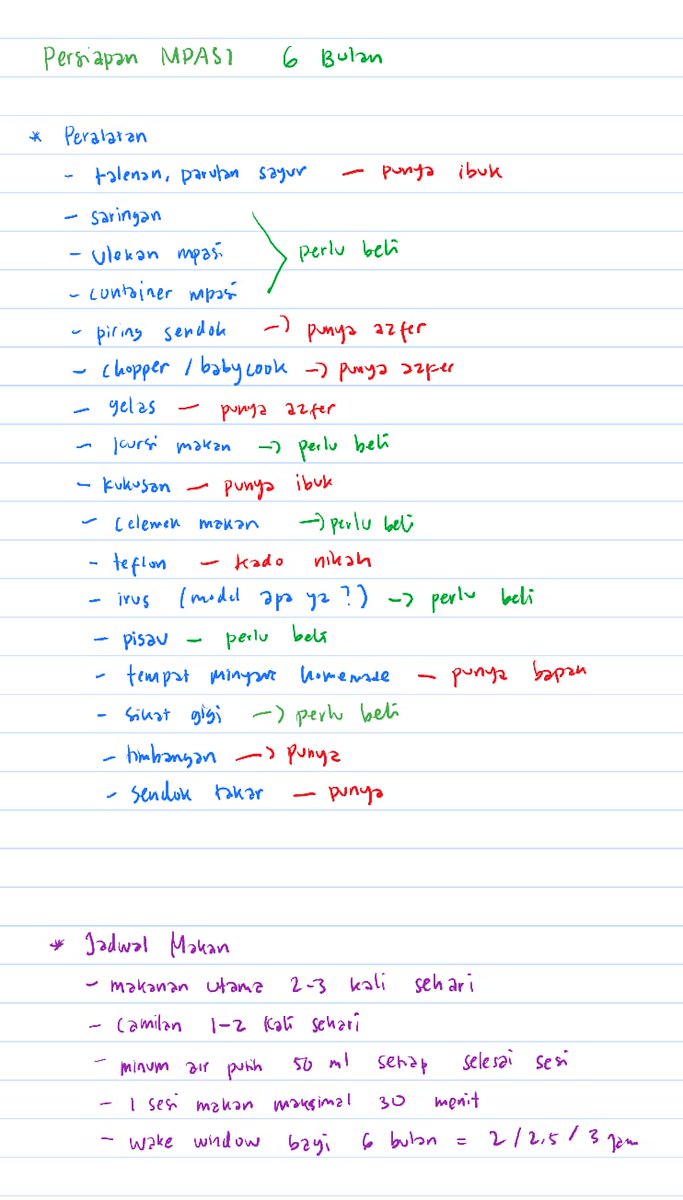 Persiapan MPASI 6 Bulan
* Peralatan
- talenan, parutan sayur — punya ibuk
- saringan
- ulekan mpasi > perlu beli
- container mpasi
- piring sendok -> punya azfer
- chopper / babycook -> punya azfer
- gelas — punya azfer
- kursi makan -> perlu beli
- kukusan — punya ibuk
- celemek makan -> perlu beli
- teflon — kado nikah
- irus (model apa ya?) -> perlu beli
- pisau — perlu beli
- tempat minyak homemade — punya bapak
- sikat gigi -> perlu beli
- timbangan -> punya
- sendok takar — punya
* Jadwal Makan
- makanan utama 2-3 kali sehari
- camilan 1-2 kali sehari
- minum air putih 50 ml setiap selesai sesi
- 1 sesi makan maksimal 30 menit
- wake window bayi 6 bulan = 2 / 2,5 / 3 jam